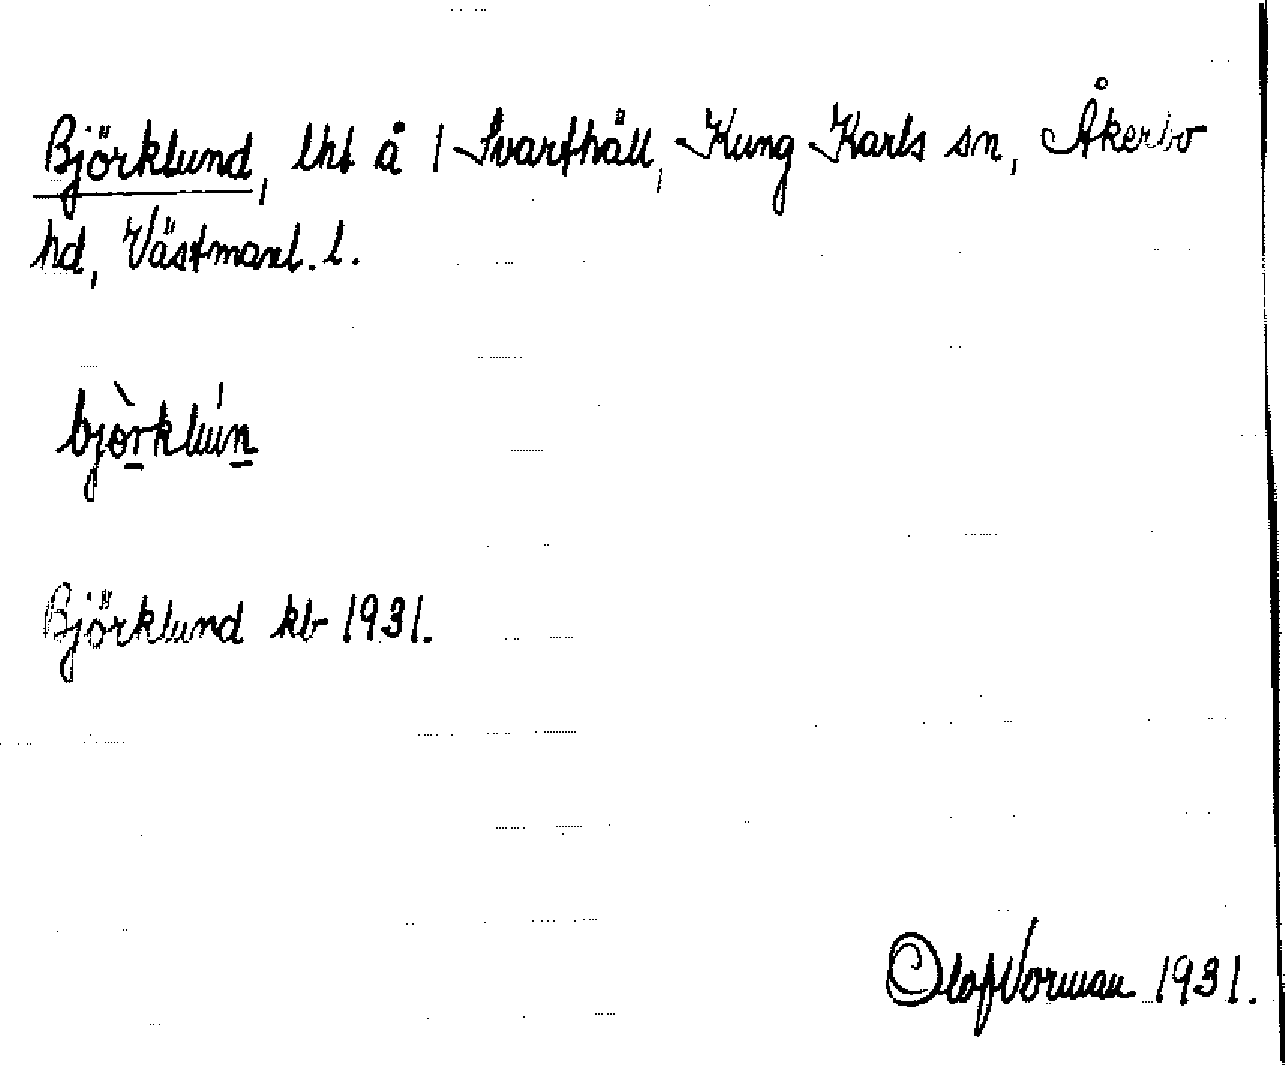 Björklund, lht å 1 Svarthäll, Kung Karls sn, Åkerbo
hd, Västmanl. l.
bjò̱rklúṉ
Björklund kb 1931.
Olof Norman 1931.